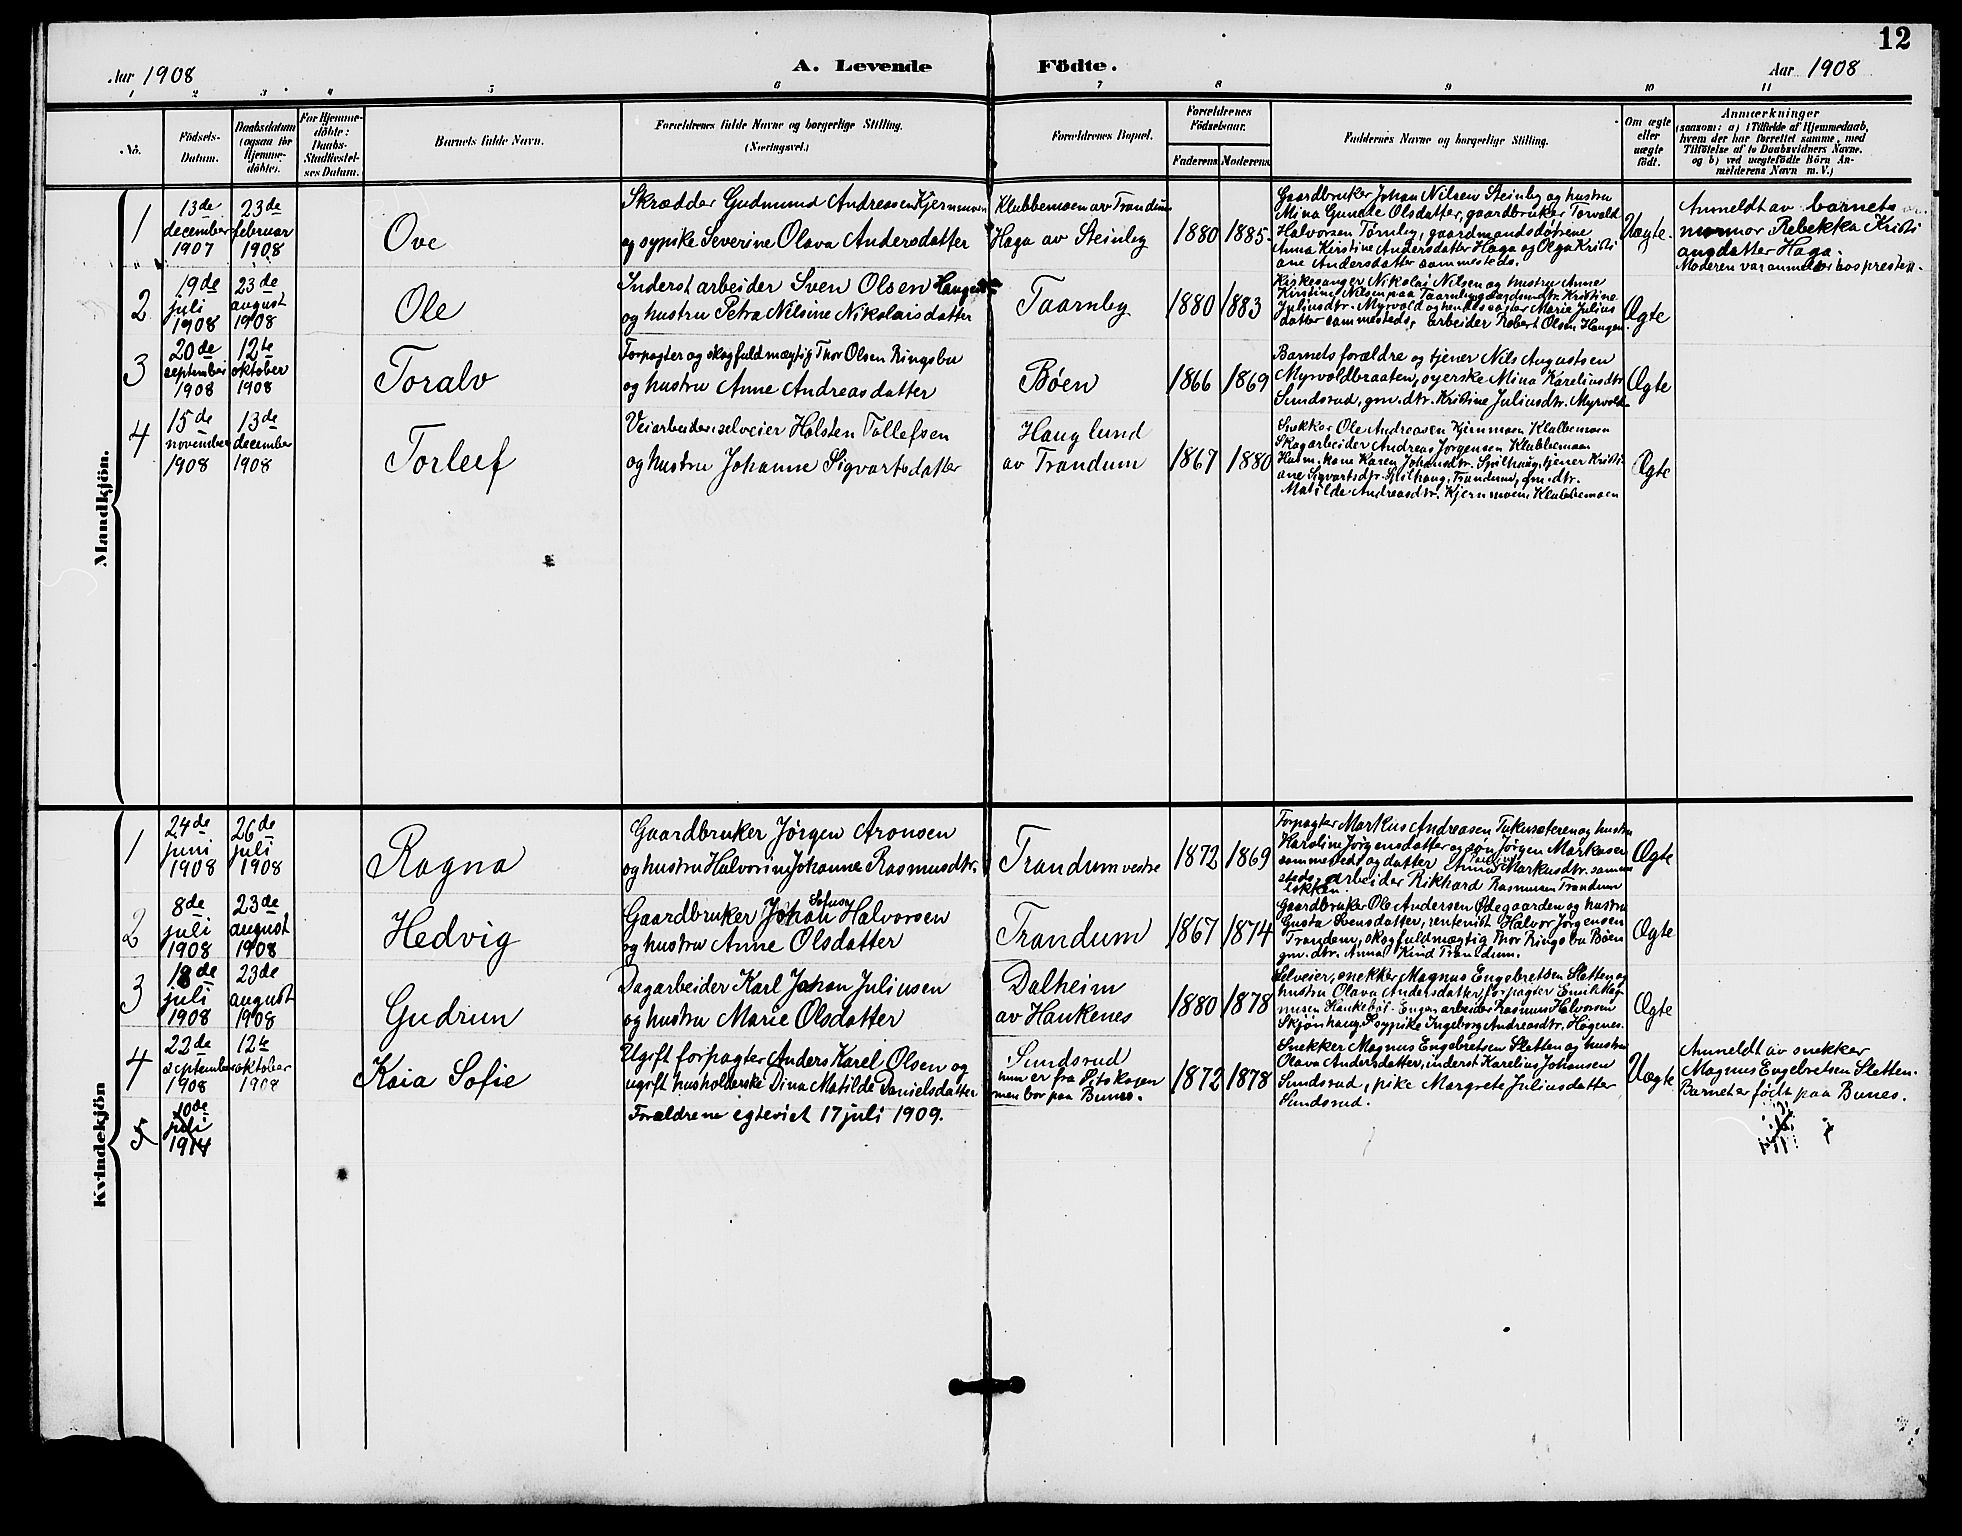 12
Aar 1908
A. Levende Födte.
Aar 1908
1 2 3 4 5 6 7 8 9 10 11
No.
Födsels-
Datum.
Daabsdatum
(ogsaa for
Hjemme-
döbte).
For Hjemme-
döbte:
Daabs-
Stadfæstel-
ses Datum.
Barnets fulde Navn.
Forældrenes fulde Navne og borgerlige Stilling.
(Næringsvei.)
Forældrenes Bopæl.
Forældrenes
Födselsaar.
Faderens
Moderens
Faddernes Navne og borgerlige Stilling.
Om ægte
eller
uægte
födt.
Anmærkninger
(saasom: a) i Tilfælde af Hjemmedaab,
hvem der har forrettet samme, med
Tilföielse af to Daabsvidners Navne.
og b) ved uægtefödte Börn An-
melderens Navn m. V.)
Mandkjön.
1
13de
december
1907
23de
februar
1908
Ove
Skrædder Gudmund Andreasen Kjernmoen
og sypike Severine Olava Andersdatter
Klubbemoen av Trandum
Haga av Steinby
1880
1885
Gaardbruker Johan Nilsen Steinby og hustru
Mina Gunde Olsdatter, gaardbruker Torvald
Halvorsen Tørnby, gaardmandsdøtrene
Anna Kirstine Andersdatter Haga og Olga Kristi
ane Andersdatter sammesteds.
Uægte.
Anmeldt av barnets
mormor Rebekka Kristi
ansdatter Haga.
Moderen var anmelder hos presten.
2
19de
juli
1908
23de
august
1908
Ole
Inderst arbeider Sven Olsen Haugen
og hustru Petra Nilsine Nikolaisdatter
Taarnby
1880
1883
Kirkesanger Nikolai Nilsen og hustru Anne
Kirstine Nilsen paa Taarnby, gaardmdtr. Kristine
Juliusdtr. Myrvold og hendes søster Marie Julius
datter sammesteds, arbeider Robert Olsen Haugen.
Ægte
3
20de
september
1908
12te
oktober
1908
Toralv
Forpagter og skogfuldmægtig Thor Olsen Ringsbu
og hustru Anne Andreasdatter
Bøen
1866
1869
Barnets forældre og tjener Nils Augustsen
Myrvoldbraaten, syerske Mina Kareliusdtr
Sundsrud, gm. dtr. Kristine Juliusdtr. Myrvold
Ægte
4
15de
november
1908
13de
december
1908
Torleif
Veiarbeider, selveier Halsten Tollefsen
og hustru Johanne Sigvartsdatter
Hauglund
av Trandum
1867
1880
Snekker Ole Andreasen Kjernmoen Klubbemoen
Skogarbeider Andreas Jørgensen Klubbemoen
Husm. kone Karen Johansdtr. Spilhaug, tjener Kristi
ane Sigvartsdtr. Spilhaug, Trandum, gm. dtr.
Matilde Andreasdtr. Kjernmoen, Klubbemoen
Ægte
Kvindekjön
1
24de
juni
1908
26de
juli
1908
Ragna
Gaardbruker Jørgen Aronsen
og hustru Halvorine Johanne Rasmusdtr.
Trandum vestre
1872
1869
Forpagter Markus Andreasen Tukusæteren og hustru
Karoline Jørgensdatter og søn Jørgen Markusen
sammesteds og datter Anna Markusdtr. samme
steds, arbeider Rikhard Rasmusen Trandum
løkken.
Ægte
2
8de
juli
1908
23de
august
1908
Hedvig
Gaardbruker Johan Sofus Halvorsen
og hustru Anne Olsdatter
Trandum
1867
1874
Gaardbruker Ole Andersen Ødegaarden og hustru
Gusta Svensdatter, rentenist Halvor Jørgensen
Trandem, skogfuldmægtig Thor Ringsbu Bøen
gm. dtr. Anna Kind Trandum.
Ægte
3
18de
juli
1908
23de
august
1908
Gudrun
Dagarbeider Karl Johan Juliusen
og hustru Marie Olsdatter
Dalheim
av Haukenes
1880
1878
Selveier, snekker Magnus Engebretsen Sletten og
hustru Olava Andersdatter, forpagter Emil Mag
nusen Engen, arbeider Rasmus Halvorsen
Skjønhaug, sypike Ingeborg Andreasdtr. Høgenes.
Ægte
4
22de
september
1908
12te
oktober
1908
Kaia Sofie
Ugift forpagter Anders Karel Olsen og
ugift husholderske Dina Matilde Danielsdatter
Forældrene egteviet 17 juli 1909.
Sundsrud
hun er fra Sitskogen
men bor paa Bunes.
1872
1878
Snekker Magnus Engebretsen Sletten og hustru
Olava Andersdatter, inderst Karelius Johansen
Sundsrud, pike Margrete Juliusdatter
Sundsrud.
Uægte
Anmeldt av snekker
Magnus Engebretsen Sletten.
Barnet er født paa Bunes.
5
10de
juli
1914